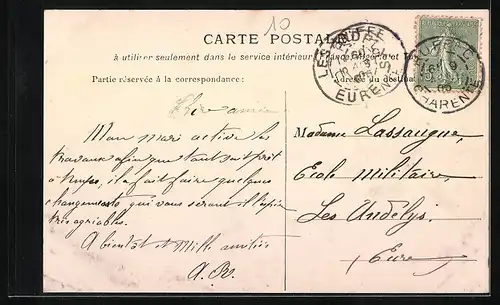 10
CARTE POSTALE
à utiliser seulement dans le service intérieur
Partie réservée à la correspondance:
Chère amie
Mon mari active les
travaux afin que tout soit prêt
à temps, il a fait faire quelques
changements qui vous seront il l'espère
très agréables.
A bientôt et Mille amitiés
Madame Lassaugue,
Ecole Militaire,
Les Andelys,
Eure
RUFFEC
CHARENTE
LES ANDELYS
EURE